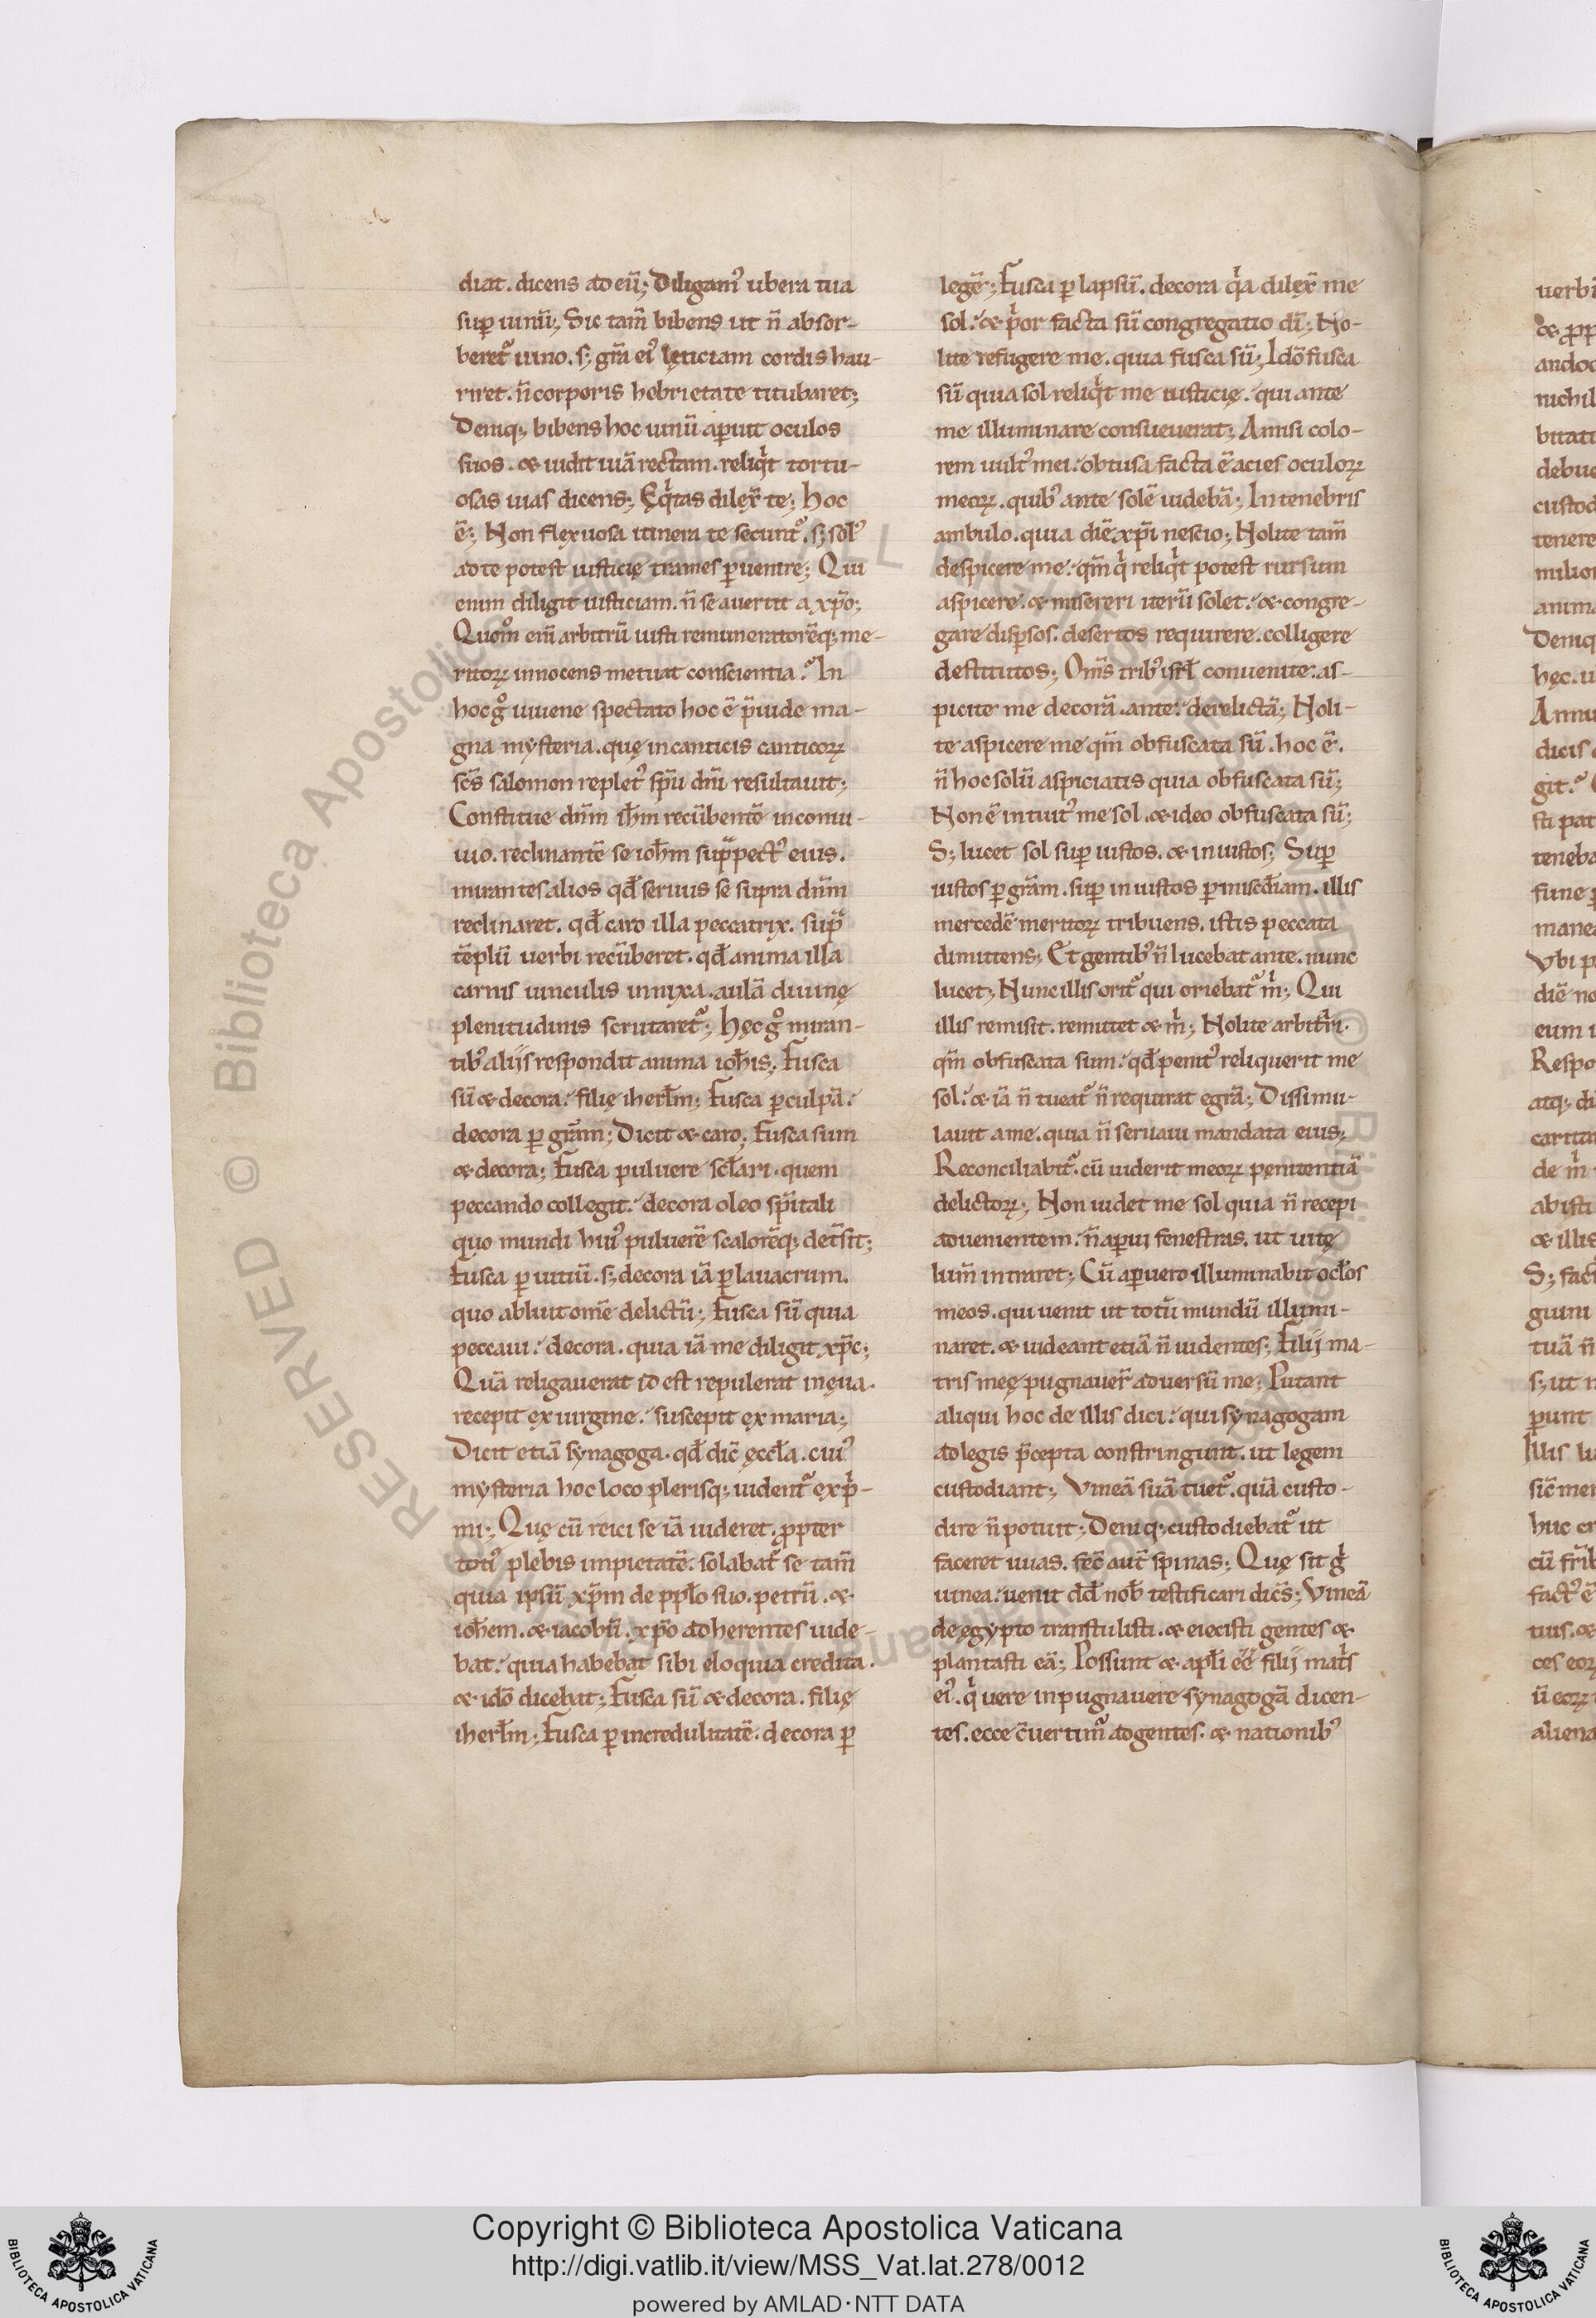 diat. dicens ad eū; Diligamꝰ ubera tua
suꝑ uinū; Sic tam̄ bibens ut n̄ absor-
beret᷑ uino. s; gr̄a eiꝰ lęticiam cordis hau-
riret. n̄ corporis hebrietate titubaret;
Deniq; bibens hoc uinū aꝑuit oculos
suos. & uidit uiā rectam. reliqͥt tortu-
osas uias dicens; Eqͥtas dilex̄ te; Hoc
ē; Non flexuosa itinera te secunt᷑. s; solꝰ
ad te potest iusticię trames ꝑuenire; Qui
enim diligit iusticiam. n̄ se auertit a xp̄o;
Quem̊ eni̅ arbitrū iusti remuneratorēq; me-
ritoꝝ innocens metuat conscientia? In
hoc gͦ iuuene spectato hoc ē p̄uide ma-
gna mysteria. quę in canticis canticoꝝ
sc̄s salomon repletꝰ sp̄u dn̄i resultauit;
Constitue dn̄m ih̄m recūbentē in conui-
uio. reclinantē se ioh̄m sup̄ pectꝰ eius.
mirantes alios qđ seruus se supra dn̄m
reclinaret. qđ caro illa peccatrix. sup̄
tēplū uerbi recūberet. qđ anima illa
carnis uinculis innixa. aulā diuinę
plenitudinis scrutaret᷑; Hęc gͦ miran-
tibꝰ alijs respondit anima ioh̄is; Fusca
sū & decora. filię iherl̄m; Fusca ꝑ culpā.
decora ꝑ gr̄am; Dicit & caro; Fusca sum
& decora; Fusca puluere scl̄ari. quem
peccando collegit. decora oleo sp̄itali
quo mundi huiꝰ puluerē scalorēq; det̄sit;
Fusca ꝑ uitiū. s; decora iā ꝑ lauacrum.
quo abluit om̄e delictū; Fusca sū quia
peccaui. decora. quia iā me diligit xp̄c;
Quā religauerat id est repulerat in ęua.
recepit ex uirgine. suscepit ex maria;
Dicit etiā synagoga. qđ dic̄ ęccl̄a. cuiꝰ
mysteria hoc loco plerisq; uident᷑ exp̄-
mi; Quę cū reici se iā uideret. ꝓpter
totiꝰ plebis impietatē. solabat᷑ se tam̄
quia ipsū xp̄m de ppl̄o suo. petrū. &
ioh̄em. & iacobū. xp̄o adherentes uide-
bat. quia habebat sibi eloquia credita.
& idō dicebat; Fusca sū & decora. filię
iherl̄m; Fusca ꝑ incredulitatē. decora ꝑ
legē; Fusca ꝑ lapsū. decora qͥa dilex̄ me
sol. & pͥor facta sū congregatio dī; No-
lite refugere me. quia fusca sū; Idō fusca
sū quia sol reliqͥt me iusticię. qui ante
me illuminare consueuerat; Amisi colo-
rem uultꝰ mei. obtusa facta ē acies oculoꝝ
meoꝝ. quibꝰ ante solē uidebā; In tenebris
ambulo. quia diē xp̄i nescio; Nolite tam̄
despicere me. qm̄ qͥ reliqͥt potest rursum
aspicere. & misereri uerū solet. & congre-
gare disꝑsos. desertos requirere. colligere
destitutos; Om̄s tribꝰ isrl̄ conuenite. as-
picite me decorā. ante derelictā; Noli-
te aspicere me qm̄ obfuscata sū. hoc ē.
n̄ hoc solū aspiciatis quia obfuscata sū;
Non ē intuitꝰ me sol. & ideo obfuscata sū;
S; lucet sol suꝑ iustos. & iniustos; Suꝑ
iustos ꝑ gr̄am. suꝑ iniustos ꝑ misc̄diam. illis
mercedē meritoꝝ tribuens. istis peccata
dimittens; Et gentibꝰ n̄ lucebat ante. nunc
lucet; Nunc illis orit᷑ qui oriebat᷑ mͥ; Qui
illis remisit. remittet & mͥ; Nolite arbitͣri.
qm̄ obfuscata sum. qđ penitꝰ reliquerit me
sol. & iā n̄ tueat᷑ n̄ requirat egrā; Dissimu-
lauit a me. quia n̄ seruaui mandata eius;
Reconciliabit᷑. cū uiderit meoꝝ penitentiā
delictoꝝ; Non uidet me sol quia n̄ recepi
aduenientem. n̄ aꝑui fenestras. ut uitę
lum̄ intraret; Cū aꝑuero illuminabit ocl̄os
meos. qui uenit ut totū mundū illumi-
naret. & uideant etiā n̄ uidentes; Filij ma-
tris meę pugnauer̄ aduersū me; Putant
aliqui hoc de illis dici. qui synagogam
ad legis p̄cepta constringunt. ut legem
custodiant; Vineā suā tuet᷑. quā custo-
dire n̄ potuit; Deniq; custodiebat᷑ ut
faceret uuas. fec̄ aut̄ spinas; Quę sit gͥ
uinea. uenit dd̄ nob̄ testificari dic̄s; Vineā
de ęgypto transtulisti. & eiecisti gentes &
plantasti eā; Possunt & apl̄i ēē filij matͥs
eiꝰ. qͥ uere inpugnauere synagogā dicen-
tes. ecce c̄uertim᷑ ad gentes. & nationibꝰ
Copyright © Biblioteca Apostolica Vaticana
http://digi.vatlib.it/view/MSS_Vat.lat.278/0012
powered by AMLAD·NTT DATA